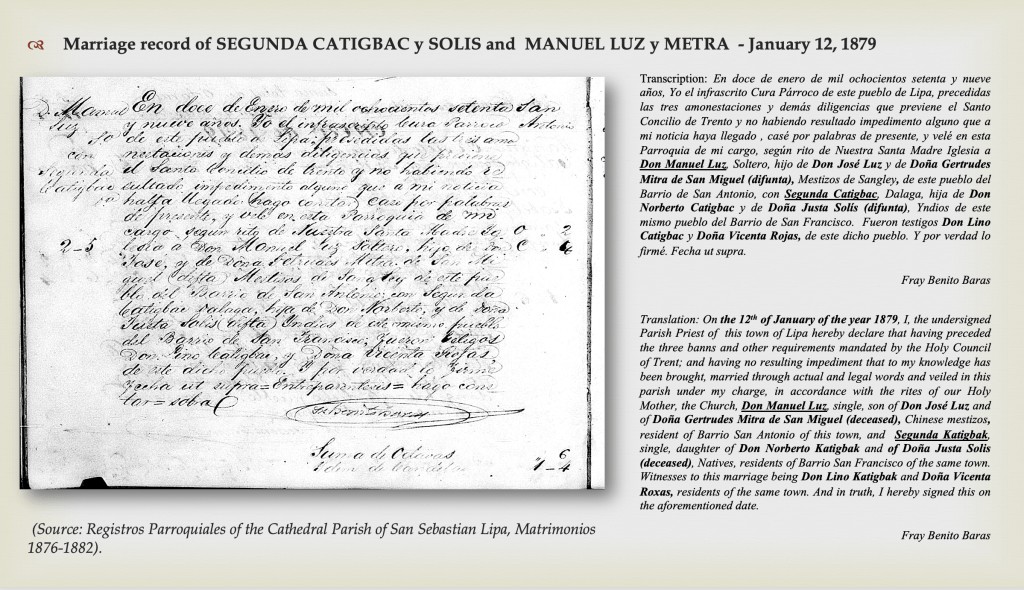 Marriage record of SEGUNDA CATIGBAC y SOLIS and MANUEL LUZ y METRA - January 12, 1879
Dn. Manuel
Luz
con
Segunda
Catigbac
2-5
En doce de Enero de mil ochocientos setenta
y nueve años. Yo el infrascripto Cura Parroco
de este pueblo de Lipa: precedidas las tres amo
nestaciones y demas diligencias que previene
el Santo Concilio de trento y no habiendo re
sultado impedimento alguno que a mi noticia
halla llegado (hago constar) case por palabras
de presente, y vele en esta Parroquia de mi
cargo segun rito de Nuestra Santa Madre
a Don Manuel Luz Soltero, hijo de Don
Jose, y de Doña Getrudes Mitra de San Mi
guel (difta) Mestisos de Sangley de este pue
blo del Barrio de San Antonio: con Segunda
Catigbac Dalaga, hija de Don Norberto, y de Doña
Justa Solis (difta) Yndios de este mismo pueblo
del Barrio de San Francisco, Fueron testigos
Don Lino Catigbac, y Doña Vicenta Rojas
de este dicho pueblo. Y por verdad lo firme
Fecha ut supra=Entreparentesis= hago cons
tar= soba
San
Antonio
O 2
C 4
Suma de Octavas 6
1-4
(Source: Registros Parroquiales of the Cathedral Parish of San Sebastian Lipa, Matrimonios
1876-1882).
Transcription: En doce de enero de mil ochocientos setenta y nueve
años, Yo el infrascrito Cura Párroco de este pueblo de Lipa, precedidas
las tres amonestaciones y demás diligencias que previene el Santo
Concilio de Trento y no habiendo resultado impedimento alguno que a
mi noticia haya llegado , casé por palabras de presente, y velé en esta
Parroquia de mi cargo, según rito de Nuestra Santa Madre Iglesia a
Don Manuel Luz, Soltero, hijo de Don José Luz y de Doña Gertrudes
Mitra de San Miguel (difunta), Mestizos de Sangley, de este pueblo del
Barrio de San Antonio, con Segunda Catigbac, Dalaga, hija de Don
Norberto Catigbac y de Doña Justa Solís (difunta), Yndios de este
mismo pueblo del Barrio de San Francisco. Fueron testigos Don Lino
Catigbac y Doña Vicenta Rojas, de este dicho pueblo. Y por verdad lo
firmé. Fecha ut supra.
Fray Benito Baras
Translation: On the 12th of January of the year 1879, I, the undersigned
Parish Priest of this town of Lipa hereby declare that having preceded
the three banns and other requirements mandated by the Holy Council
of Trent; and having no resulting impediment that to my knowledge has
been brought, married through actual and legal words and veiled in this
parish under my charge, in accordance with the rites of our Holy
Mother, the Church, Don Manuel Luz, single, son of Don José Luz and
of Doña Gertrudes Mitra de San Miguel (deceased), Chinese mestizos,
resident of Barrio San Antonio of this town, and Segunda Katigbak,
single, daughter of Don Norberto Katigbak and of Doña Justa Solis
(deceased), Natives, residents of Barrio San Francisco of the same town.
Witnesses to this marriage being Don Lino Katigbak and Doña Vicenta
Roxas, residents of the same town. And in truth, I hereby signed this on
the aforementioned date.
Fray Benito Baras